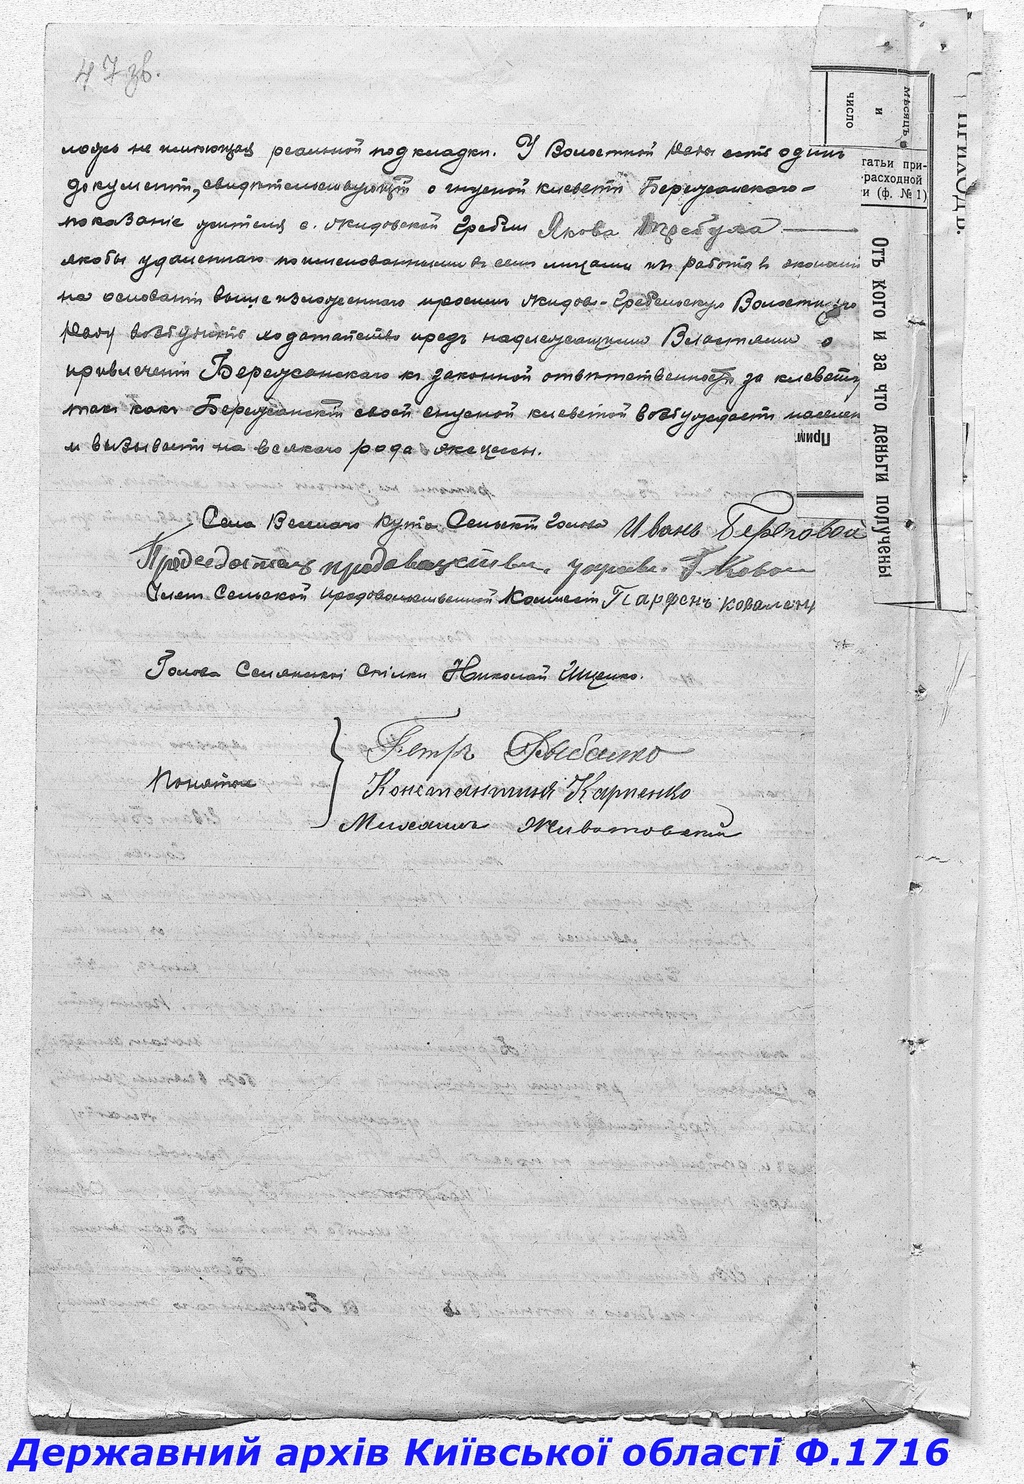 47 зв.
ложь не имеющая реальной подкладки. У Волостной Рады есть один
документ, свидетельствующий о гнусной клевете Бережанского –
показание учителя с. Жидовской Гребли Якова Требуха
якобы удаленного поименованными в селе лицами из работ в экономіи
на основаніи вышеизложенного просим Жидов-Гребельскую Волостную
Раду возбудить ходатайство пред надлежащими Властями о
привлечении Бережанского к законной ответственности за клевету
так как Бережанскій своей гнусной клеветой возбуждает населен
и вызывает на всякого рода эксцессы.
Села Великого Кута Сельскій Голова Иванъ Береповой
Председатель продовольствен. управ. Г. Ковал
Член Сельской продовольственной Комиссіи Парфенъ Коваленк
Голова Селянскої Спілки Николай Ищенко.
Понятые
Петръ Рыбалко
Константинъ Карпенко
Михаилъ Животовский
Мѣсяцъ и число
татьи при-
расходной
и (ф. № 1)
Отъ кого и за что деньги получены
Прим
ПРИХОДЪ.
Державний архів Київської області Ф.1716